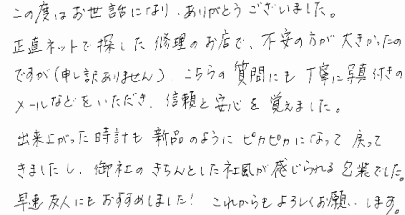 この度はお世話になり、ありがとうございました。
正直ネットで探した修理のお店で、不安の方が大きかったの
ですが(申し訳ありません)こちらの質問にも丁寧に写真付きの
メールなどをいただき、信頼と安心を覚えました。
出来上がった時計も新品のようにピカピカになって戻って
きましたし、御社のきちんとした社風が感じられる包装でした。
早速友人にもおすすめしました!これからもよろしくお願いします。